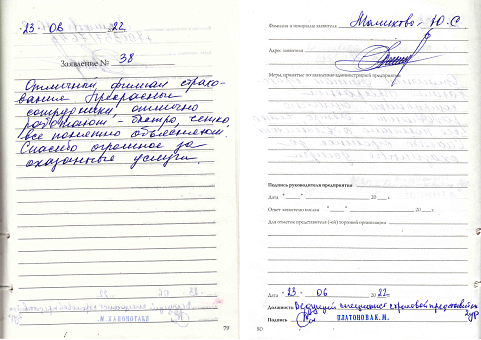 „23" 06 22
Заявление № 38
Отличный филиал страхо-
вания. Прекрасные
сотрудники, отлично
работают - быстро, четко,
все понятно объясняют.
Спасибо огромное за
оказанные услуги.
79
Фамилия и инициалы заявителя Ю.С
Адрес заявителя
Меры принятые по заявлению администрацией предприятия:
Подпись руководителя предприятия
Дата " " 20 г.
Ответ заявителю выслан " " 20 г.
Для отметок представителя (-ей) торговой организации
Дата "23" 06 2022
Должность Ведущий специалист страховой
Подпись ПЛАТОНОВА К. М.
80